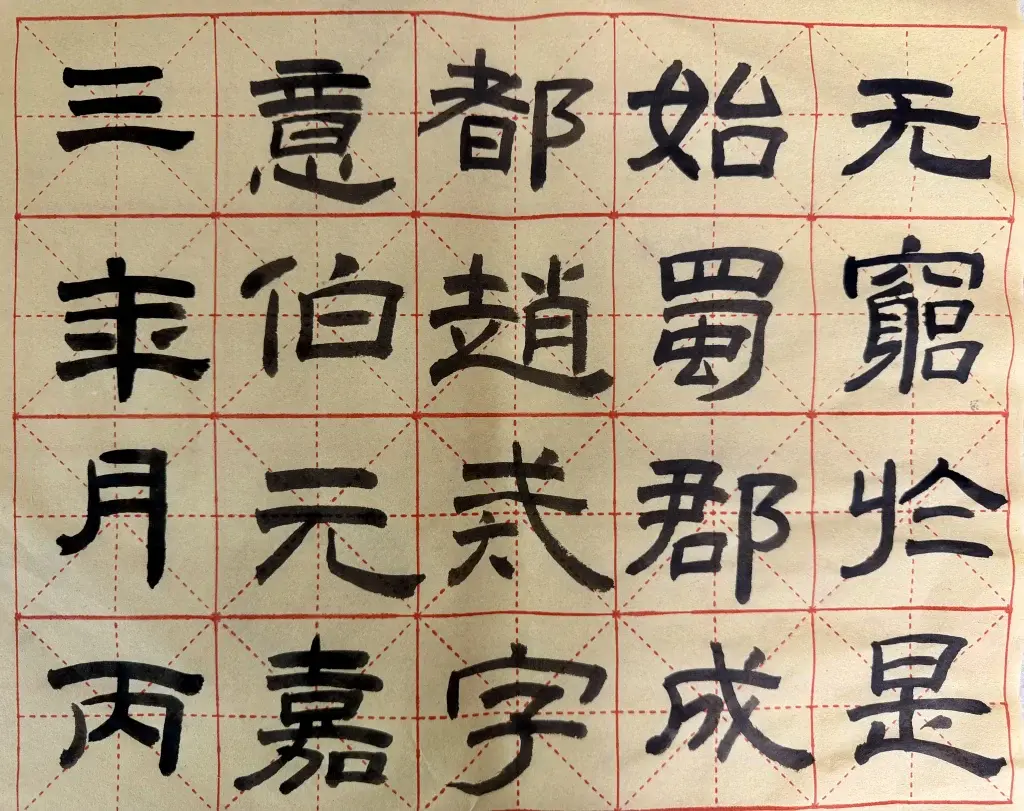 无窮於是
始蜀郡成
都趙戒字
意伯元嘉
三年月丙